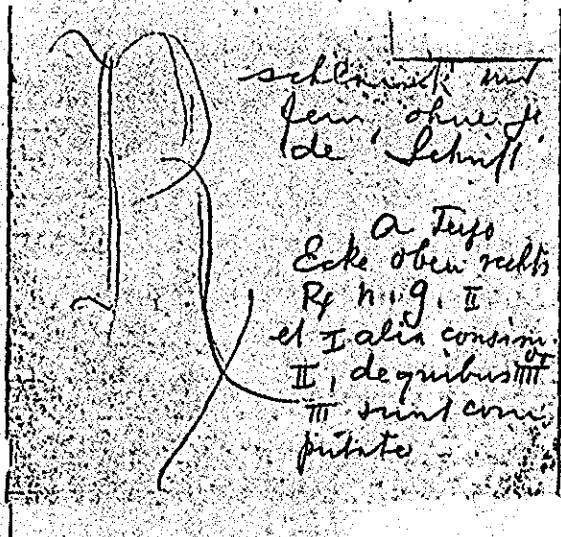 R
schlank und
fein, ohne je
de Schrift
a tergo
Ecke oben rechts
Rx h. g. II
et I alia consim.
II, de quibus IIII
III sunt com
putate